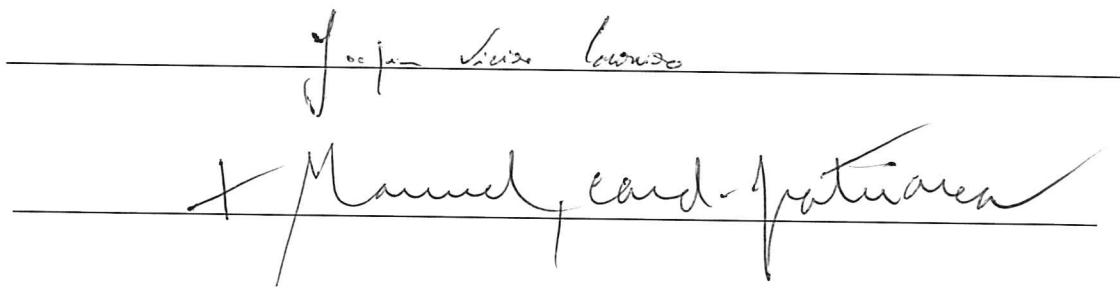 Joaquim Vieira Lourenço
+ Manuel, card-patriarca